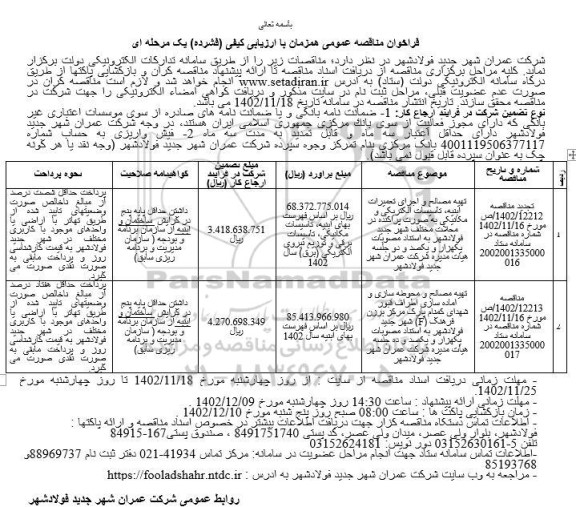 باسمه تعالی
فراخوان مناقصه عمومی همزمان با ارزیابی کیفی (فشرده) یک مرحله ای
شرکت عمران شهر جدید فولادشهر در نظر دارد؛ مناقصات زیر را از طریق سامانه تدارکات الکترونیکی دولت برگزار
نماید. کلیه مراحل برگزاری مناقصه از دریافت اسناد مناقصه تا ارائه پیشنهاد مناقصه گران و بازگشایی پاکتها از طریق
درگاه سامانه الکترونیکی دولت (ستاد) به آدرس www.setadiran.ir انجام خواهد شد و لازم است مناقصه گران در
صورت عدم عضویت قبلی، مراحل ثبت نام در سایت مذکور و دریافت گواهی امضاء الکترونیکی را جهت شرکت در
مناقصه محقق سازند. تاریخ انتشار مناقصه در سامانه تاریخ 1402/11/18 می باشد.
نوع تضمین شرکت در فرآیند ارجاع کار: 1- ضمانت نامه بانکی و یا ضمانت نامه های صادره از سوی موسسات اعتباری غیر
بانکی که دارای مجوز فعالیت از سوی بانک مرکزی جمهوری اسلامی ایران هستند، در وجه شرکت عمران شهر جدید
فولادشهر دارای حداقل اعتبار سه ماه و قابل تمدید به مدت سه ماه 2- فیش واریزی به حساب شماره
4001119506377117 بانک مرکزی بنام تمرکز وجوه سپرده شرکت عمران شهر جدید فولادشهر (وجه نقد یا هر گونه
چک به عنوان سپرده قابل قبول نمی باشد)
ردیف | شماره و تاریخ مناقصه | موضوع مناقصه | مبلغ برآورد (ریال) | مبلغ تضمین شرکت در فرآیند ارجاع کار (ریال) | گواهینامه صلاحیت | نحوه پرداخت
1 | تجدید مناقصه 12212/1402/ص مورخ 1402/11/16 شماره مناقصه در سامانه ستاد 2002001335000016 | تهیه مصالح و اجرای تعمیرات ابنیه، تاسیسات الکتریکی و مکانیکی به صورت پراکنده در محلات مختلف شهر جدید فولادشهر به استناد مصوبات یکهزار و یکصد و دو جلسه هیأت مدیره شرکت عمران شهر جدید فولادشهر | 68.372.775.014 ریال بر اساس فهرست بهای ابنیه، تأسیسات مکانیکی، تأسیسات برقی و توزیع نیروی الکتریکی (برق) سال 1402 | 3.418.638.751 ریال | داشتن حداقل پایه پنج در گرایش ساختمان و ابنیه از سازمان برنامه و بودجه (سازمان مدیریت و برنامه ریزی سابق) | پرداخت حداقل شصت درصد از مبالغ ناخالص صورت وضعیتهای تایید شده از طریق تهاتر با اراضی یا واحدهای موجود با کاربری مختلف در شهر جدید فولادشهر به قیمت کارشناسی روز و پرداخت مابقی به صورت نقدی صورت می گیرد.
2 | مناقصه 12213/1402/ص مورخ 1402/11/16 شماره مناقصه در سامانه ستاد 2002001335000017 | تهیه مصالح و محوطه سازی و آماده سازی اطراف قبور شهدای گمنام پارک مرکز برزن فرهنگ (F) شهر جدید فولادشهر به استناد مصوبات یکهزار و یکصد و ده جلسه هیأت مدیره شرکت عمران شهر جدید فولادشهر | 85.413.966.980 ریال بر اساس فهرست بهای ابنیه سال 1402 | 4.270.698.349 ریال | داشتن حداقل پایه پنج در گرایش ساختمان و ابنیه از سازمان برنامه و بودجه (سازمان مدیریت و برنامه ریزی سابق) | پرداخت حداقل هفتاد درصد از مبالغ ناخالص صورت وضعیتهای تایید شده از طریق تهاتر با اراضی یا واحدهای موجود با کاربری مختلف در شهر جدید فولادشهر به قیمت کارشناسی روز و پرداخت مابقی به صورت نقدی صورت می گیرد.
- مهلت زمانی دریافت اسناد مناقصه از سایت : از روز چهارشنبه مورخ 1402/11/18 تا روز چهارشنبه مورخ
1402/11/25.
- مهلت زمانی ارائه پیشنهاد : ساعت 14:30 روز چهارشنبه مورخ 1402/12/09
- زمان بازگشایی پاکت ها : ساعت 08:00 صبح روز پنج شنبه مورخ 1402/12/10
- اطلاعات تماس دستگاه مناقصه گزار جهت دریافت اطلاعات بیشتر در خصوص اسناد مناقصه و ارائه پاکتها :
فولادشهر، بلوار ولی عصر، میدان ولی عصر، کد پستی 8491751740 ، صندوق پستی167-84915
تلفن 5-03152630161 دور نویس: 03152624181
-اطلاعات تماس سامانه ستاد جهت انجام مراحل عضویت در سامانه: مرکز تماس 41934-021 دفتر ثبت نام 88969737و
85193768
- مراجعه به وب سایت شرکت عمران شهر جدید فولادشهر به آدرس : https://fooladshahr.ntdc.ir
روابط عمومی شرکت عمران شهر جدید فولادشهر